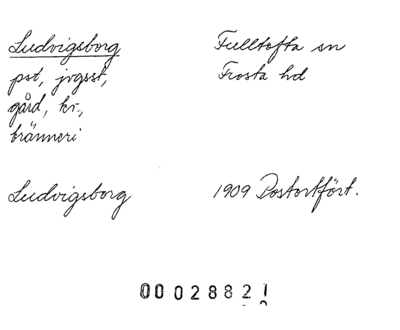 Ludvigsborg
pst, jvgsst,
gård, kr.,
bränneri
Fulltofta sn
Frosta hd
Ludvigsborg
1909 Postortfört.
0002882